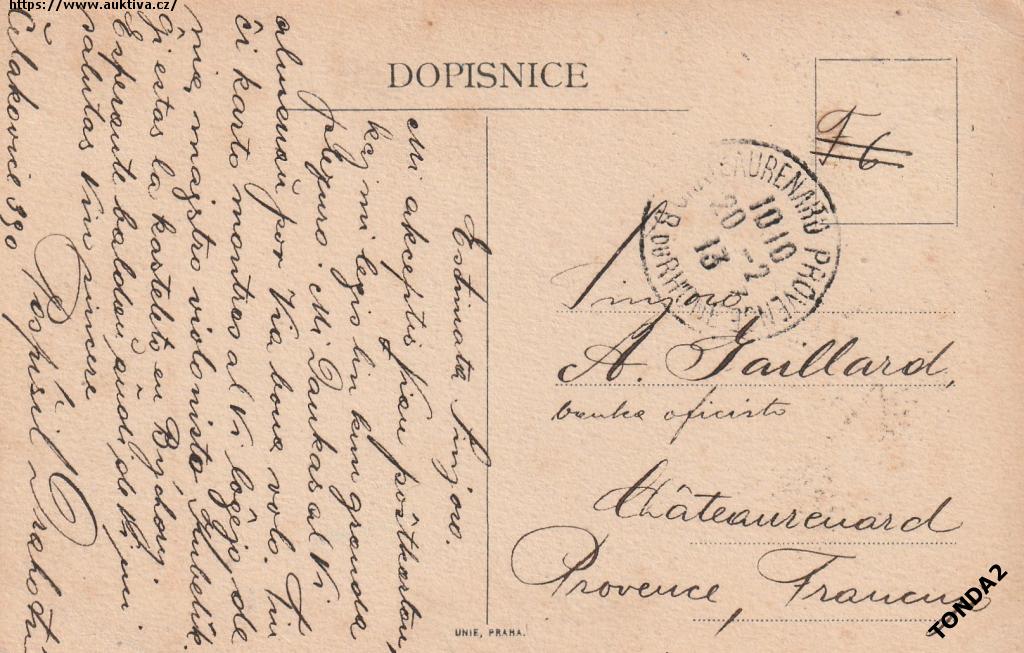 https://www.auktiva.cz/
DOPISNICE
Estimata Sinjoro.
Mi akceptis Vian poŝtkarton,
kaj mi legis ĝin kun granda
plezuro. Mi dankas al Vi
almenaŭ por Via bona volo. Tiu
ĉi karto montras al Vi loĝejo de
nia, majstro violonisto Kubelík.
Ĝi estas la kastelo en Býchory.
Esperante baldaŭ aŭdi de Vi, mi
salutas Vin sincere
Pospíšil
Čelakovice 390
T 6
CHATEAURENARD PROVENCE
10 10
20 - 2
13
B. DU RHONE
Sinjoro
A. Gaillard,
banka oficisto
Châteaurenard
Provence, Francujo
UNIE, PRAHA.
TONDA2